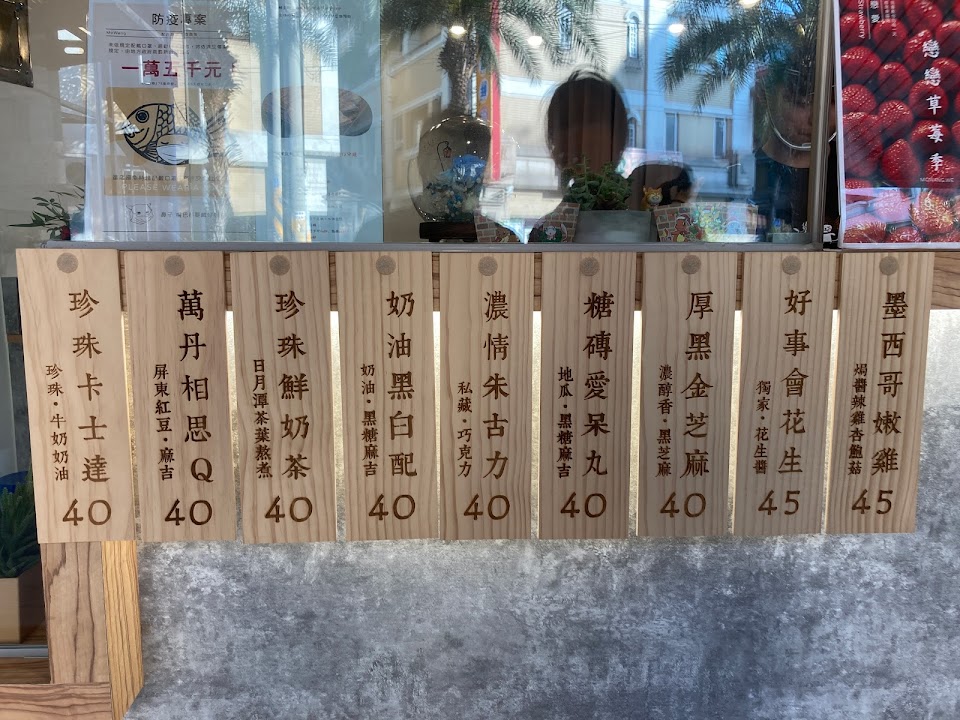 防疫專案
一萬五千元
PLEASE WEAR
戀愛
Strawberry
戀戀草莓季
珍珠卡士達
珍珠·牛奶奶油
40
萬丹相思Q
屏東紅豆·麻吉
40
珍珠鮮奶茶
日月潭茶葉熬煮
40
奶油黑白配
奶油·黑糖麻吉
40
濃情朱古力
私藏·巧克力
40
糖磚愛呆丸
地瓜·黑糖麻吉
40
厚黑金芝麻
濃醇香·黑芝麻
40
好事會花生
獨家·花生醬
45
墨西哥嫩雞
焗醬辣雞杏鮑菇
45